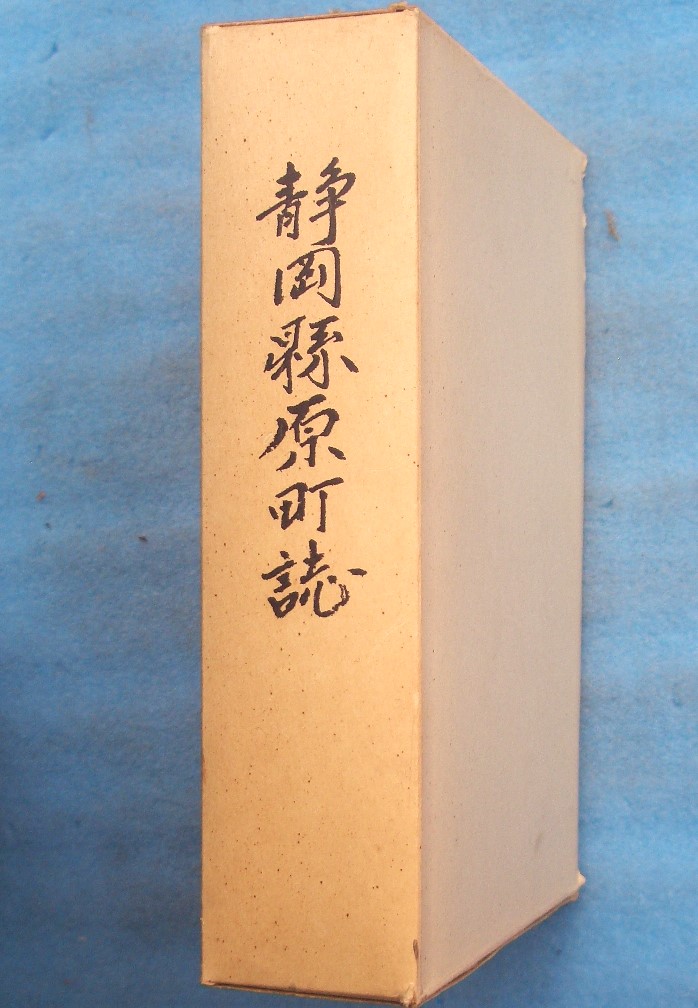 静岡縣原町誌